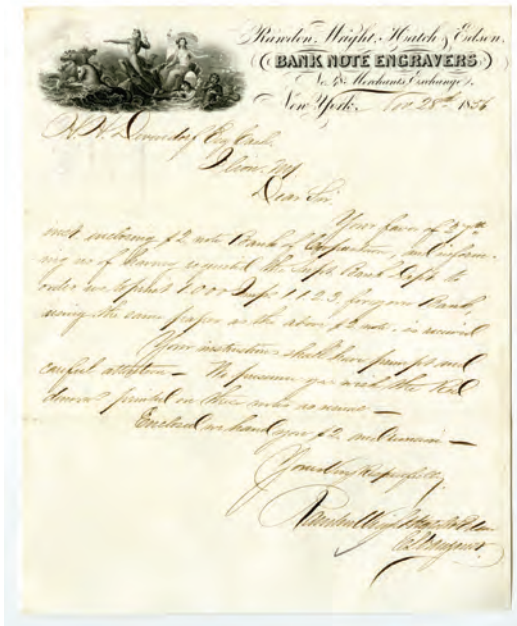 Rawdon, Wright, Hatch & Edson,
BANK NOTE ENGRAVERS
No. 48 Merchants Exchange,
New York, Nov 28th 1856
H. H. Devendorf Esq Cash.
Ilion. NY
Dear Sir.
Your favor of 27th
inst. inclosing $2 note Bank of and inform-
ing us of having requested the Supt. Bank Dept to
order us to print 1.000 Imps 1.1.2.3, for your Bank,
using the same paper as the above $2 note, is received
Your instructions shall have prompt and
careful attention — We presume you wish the Red
printed on these notes as —
Enclosed we hand you $2. and remain —
Yours Very Respectfully,
Rawdon Wright Hatch & Edson